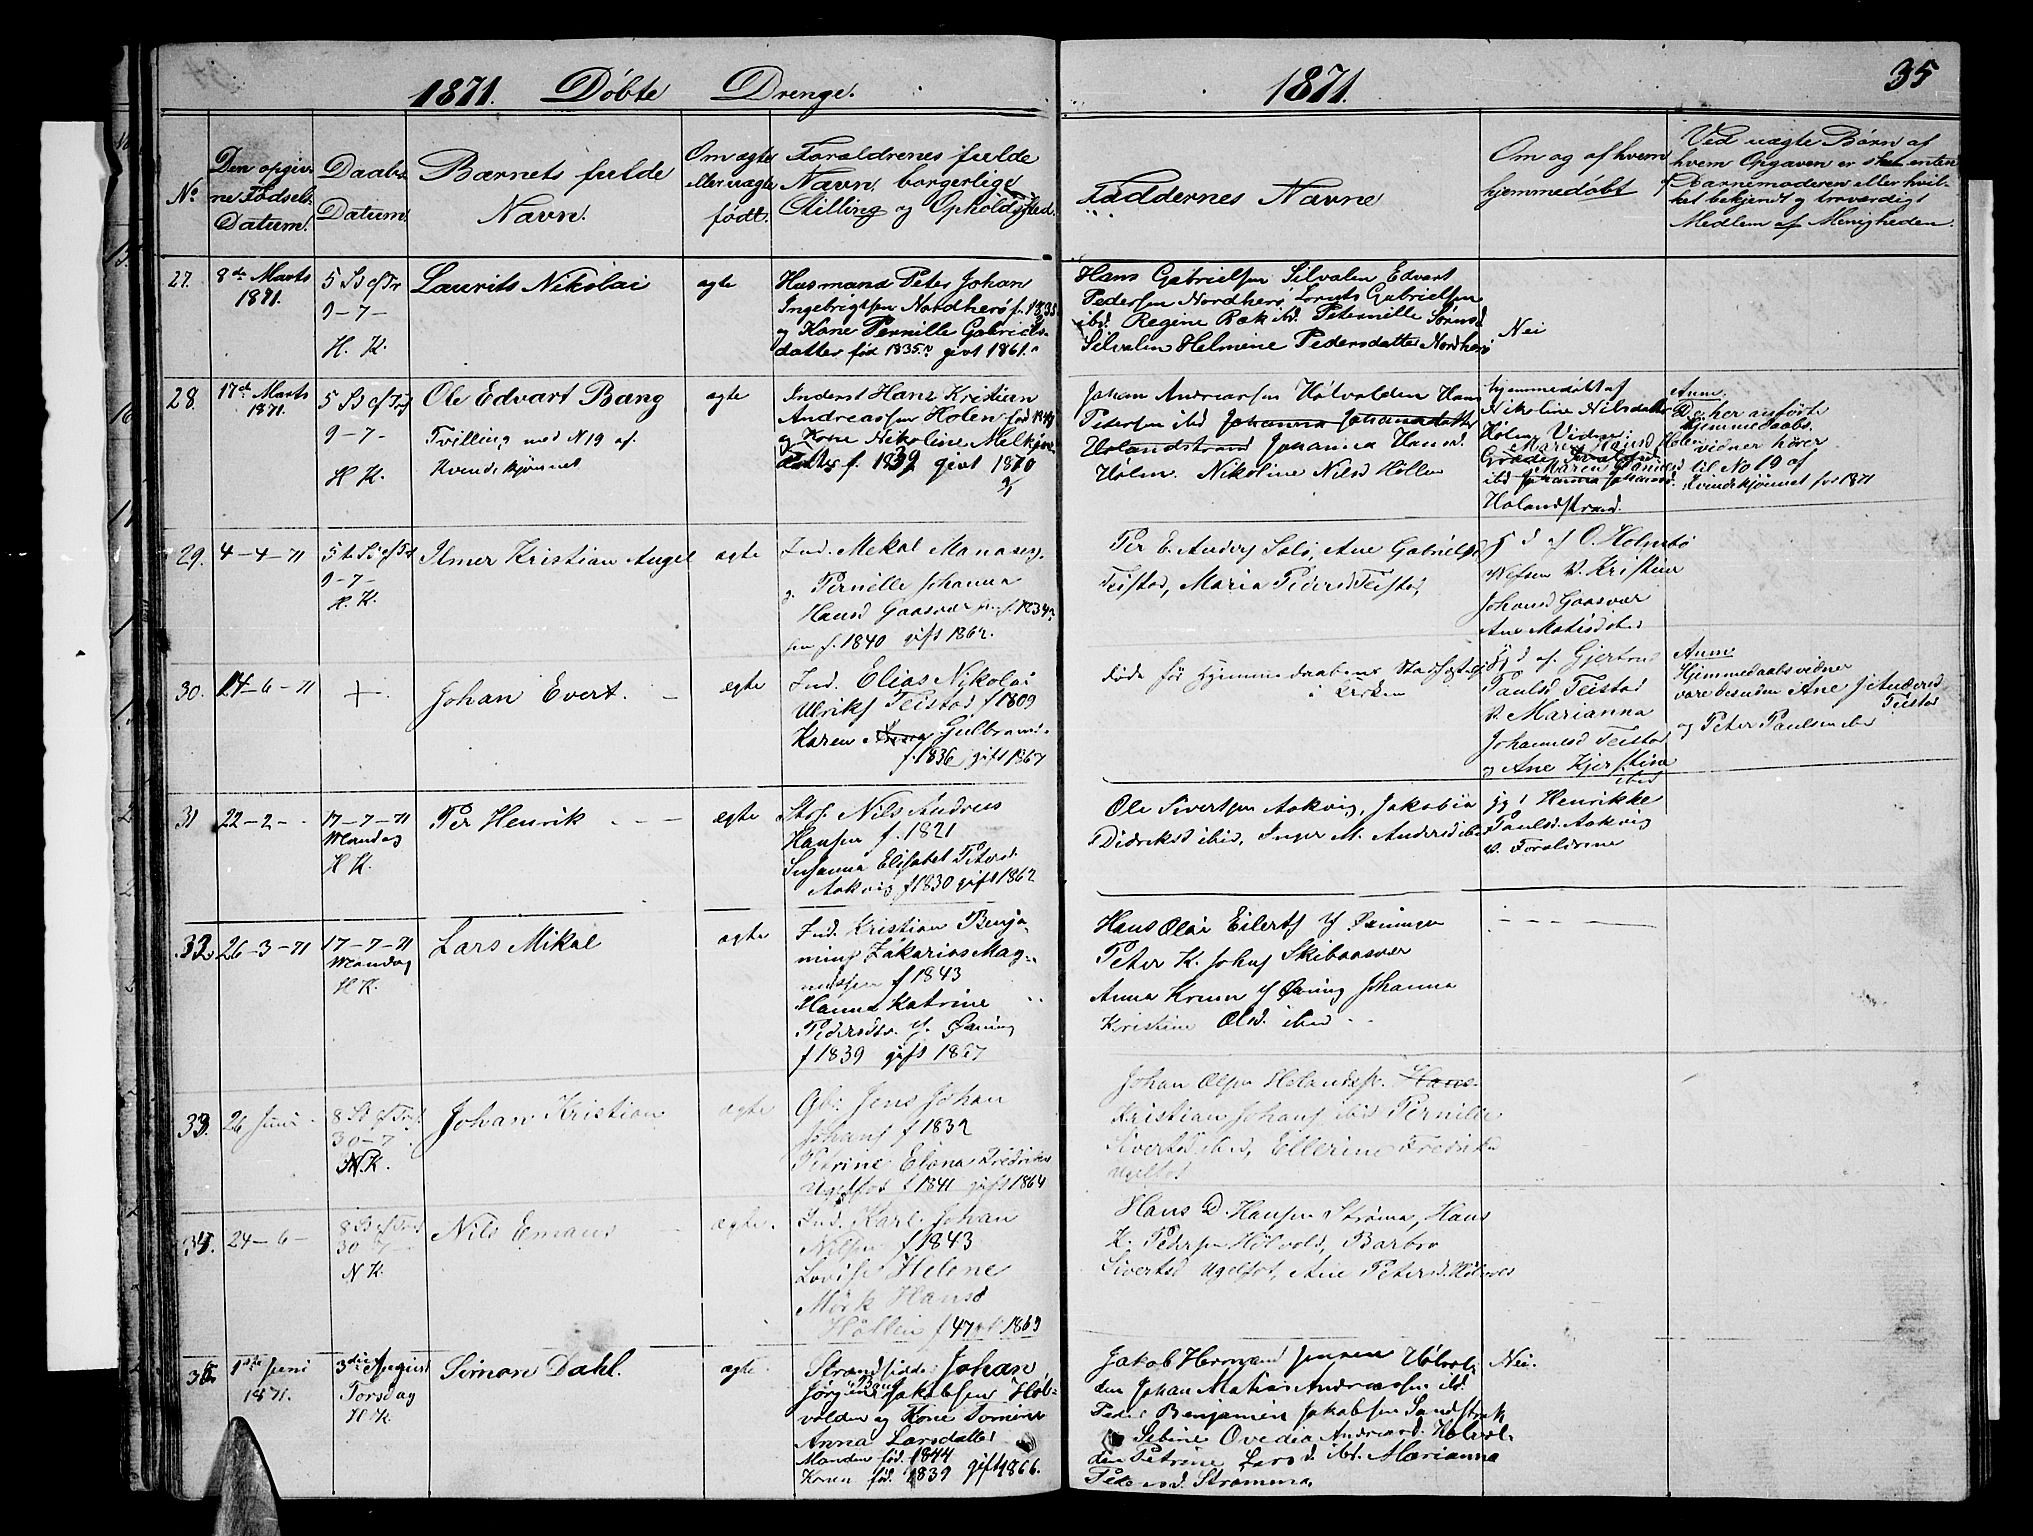 1871. Døbte Drenge.
1871.
35
No
Den opgiv-
ne Fødsels
Datum.
Daabs
Datum
Barnets fulde
Navn.
Om ægte
eller uægte
født.
Forældrenes fulde
Navn, borgerlige
Stilling og Opholdssted.
Faddernes Navne
Om og af hvem
hjemmedøbt
Ved uægte Børn af
hvem Opgaven er sket enten
Barnemoderen eller hvil-
ket bekjendt og troværdigt
Medlem af Menigheden.
27.
8de Marts
1871.
5 S. ef Tr
9-7-
H. K.
Laurits Nikolai
ægte
Husmand Peter Johan
Ingebrigtsen Nordherø f. 1835
og Kone Pernille Gabriels-
datter fød 1835 givt 1861.
Hans Gabrielsen Silvalen Edvart
Pedersen Nordherø Lorents Gabrielsen
ibd. Regine Bæk ibd. Peternille Sørensd
Silvalen Helmine Pedersdatter Nordherø
Nei
28.
17de Marts
1871.
5 S ef Tr
9-7-
H K.
Ole Edvart Bang
Tvilling med N 19 af
Kvindekjønnet
ægte
Inderst Hans Kristian
Andreassen Holen fød 1849
og Kone Nikoline Melkior
datter f. 1839 givt 1870
Johan Andreassen Hølvolden Hans
Petersen ibd Johanna Johannadatter
Holandstrand Johanna Hansd.
Hølen. Nikoline Nilsd Høllen
hjemmedøbt af
Nikoline Nilsdatter
Hølen Vidner
Maren Hansd Holen
ibd Johanna Johansd.
Holandstrand
Anm.
De her anførte
hjemmedaabs.
vidner hører
til No 19 af
Kvindekjønnet for 1871
29.
4-4-71
5te S ef Tr
9-7-
H. K.
Ilmer Kristian Angel
ægte
Ind. Mekal Manases.
Pernille Johanna
Hansd Gaasvær f. 1834
f. 1840 gift 1862.
Per E. Anders Solø, Ane Gabrielsd
Teistad, Maria Pedersd Teistad,
j d af O. Holmbø
V. Kristine
Johansd Gaasvær
Ane Matisd ibd
30.
14-6-71
+
Johan Evert.
ægte
Ind. Elias Nikolai
Ulriks Teistad f 1809
Karen Gulbrands.
f. 1836 gift 1867
døde før Hjemmedaabens Stadfæstelse
i Kirken
jg d af Gjertru
Paulsd Teistad
V. Marianna
Johannesd Teistad
og Ane Kjerstina
ibid
Anm
Hjemmedaabsvidner
vare desuden Ane J Andersd
Teistad
og Peter Paulsen ibd
31
22-2-
17-7-71
Mandag
H K.
Per Henrik
ægte
Nils Andreas
Hansen f. 1821
Susanna Elisabet Petersd.
Aakvig f 1830 gift 1862
Ole Sivertsen Aakvig, Jakobia
Didriksd ibid, Inger M. Andersd ibd
jg Henrikke
Paulsd. Aakvig
V. Forældrene
32.
26-3-71
17-7-71
Mandag
H K.
Lars Mikal
ægte
Ind. Kristian Benja-
mins Zakarias Mag-
nussen f 1843
Hanna Katrine
Pedersdtr. Y. Øxning
f 1839 gift 1867
Hans Olai Eilerts Y Øxningen
Peter K. Johns Skibaasvær
Anna Y Øxning Johanna
Kristine Olsd. ibd
33.
26 Juni
8 S ef Tr.
30-7
N. K.
Johan Kristian
ægte
Gbr. Jens Johan
Johans f 1832
Petrine Elena Fredriks
Ugelfot f 1841 gift 1864
Johan Olsen Holandsstr. Hans
Kristian Johans ibid Pernille
Sivertsd ibid, Ellerine Fredriks
Ugelfot
34.
24-6-
8 S ef Tr
30-7-
N K.
Nils Emaus
ægte.
Ind. Karl Johan
Nilsen f 1843
Lovise Helene
Mørk Hansd
Høllen f 47 1869
Hans D. Hansen Strøma, Hans
K. Pedersen Hølvold, Barbro
Sivertsd Ugelfot, Ane Petersd.
35
1ste Juni
1871.
3die August
Torsdag
H. K.
Simon Dahl.
ægte
Strandsidder Johan
Jørgen Bang Jakobsen Høl-
volden og Kone
Anna Larsdatter
Manden fød. 1844
Konen fød. 1839 gift 1866.
Jakob Herman Jensen Hølvol-
den Johan Matias Andreassen ibd.
Peder Benjamin Jakobsen Sandstrak
Sebine Ovedia Andreasd. Hølvol-
den Petrine Larsd. ibd. Marianna
Pedersd. Strømma.
Nei.